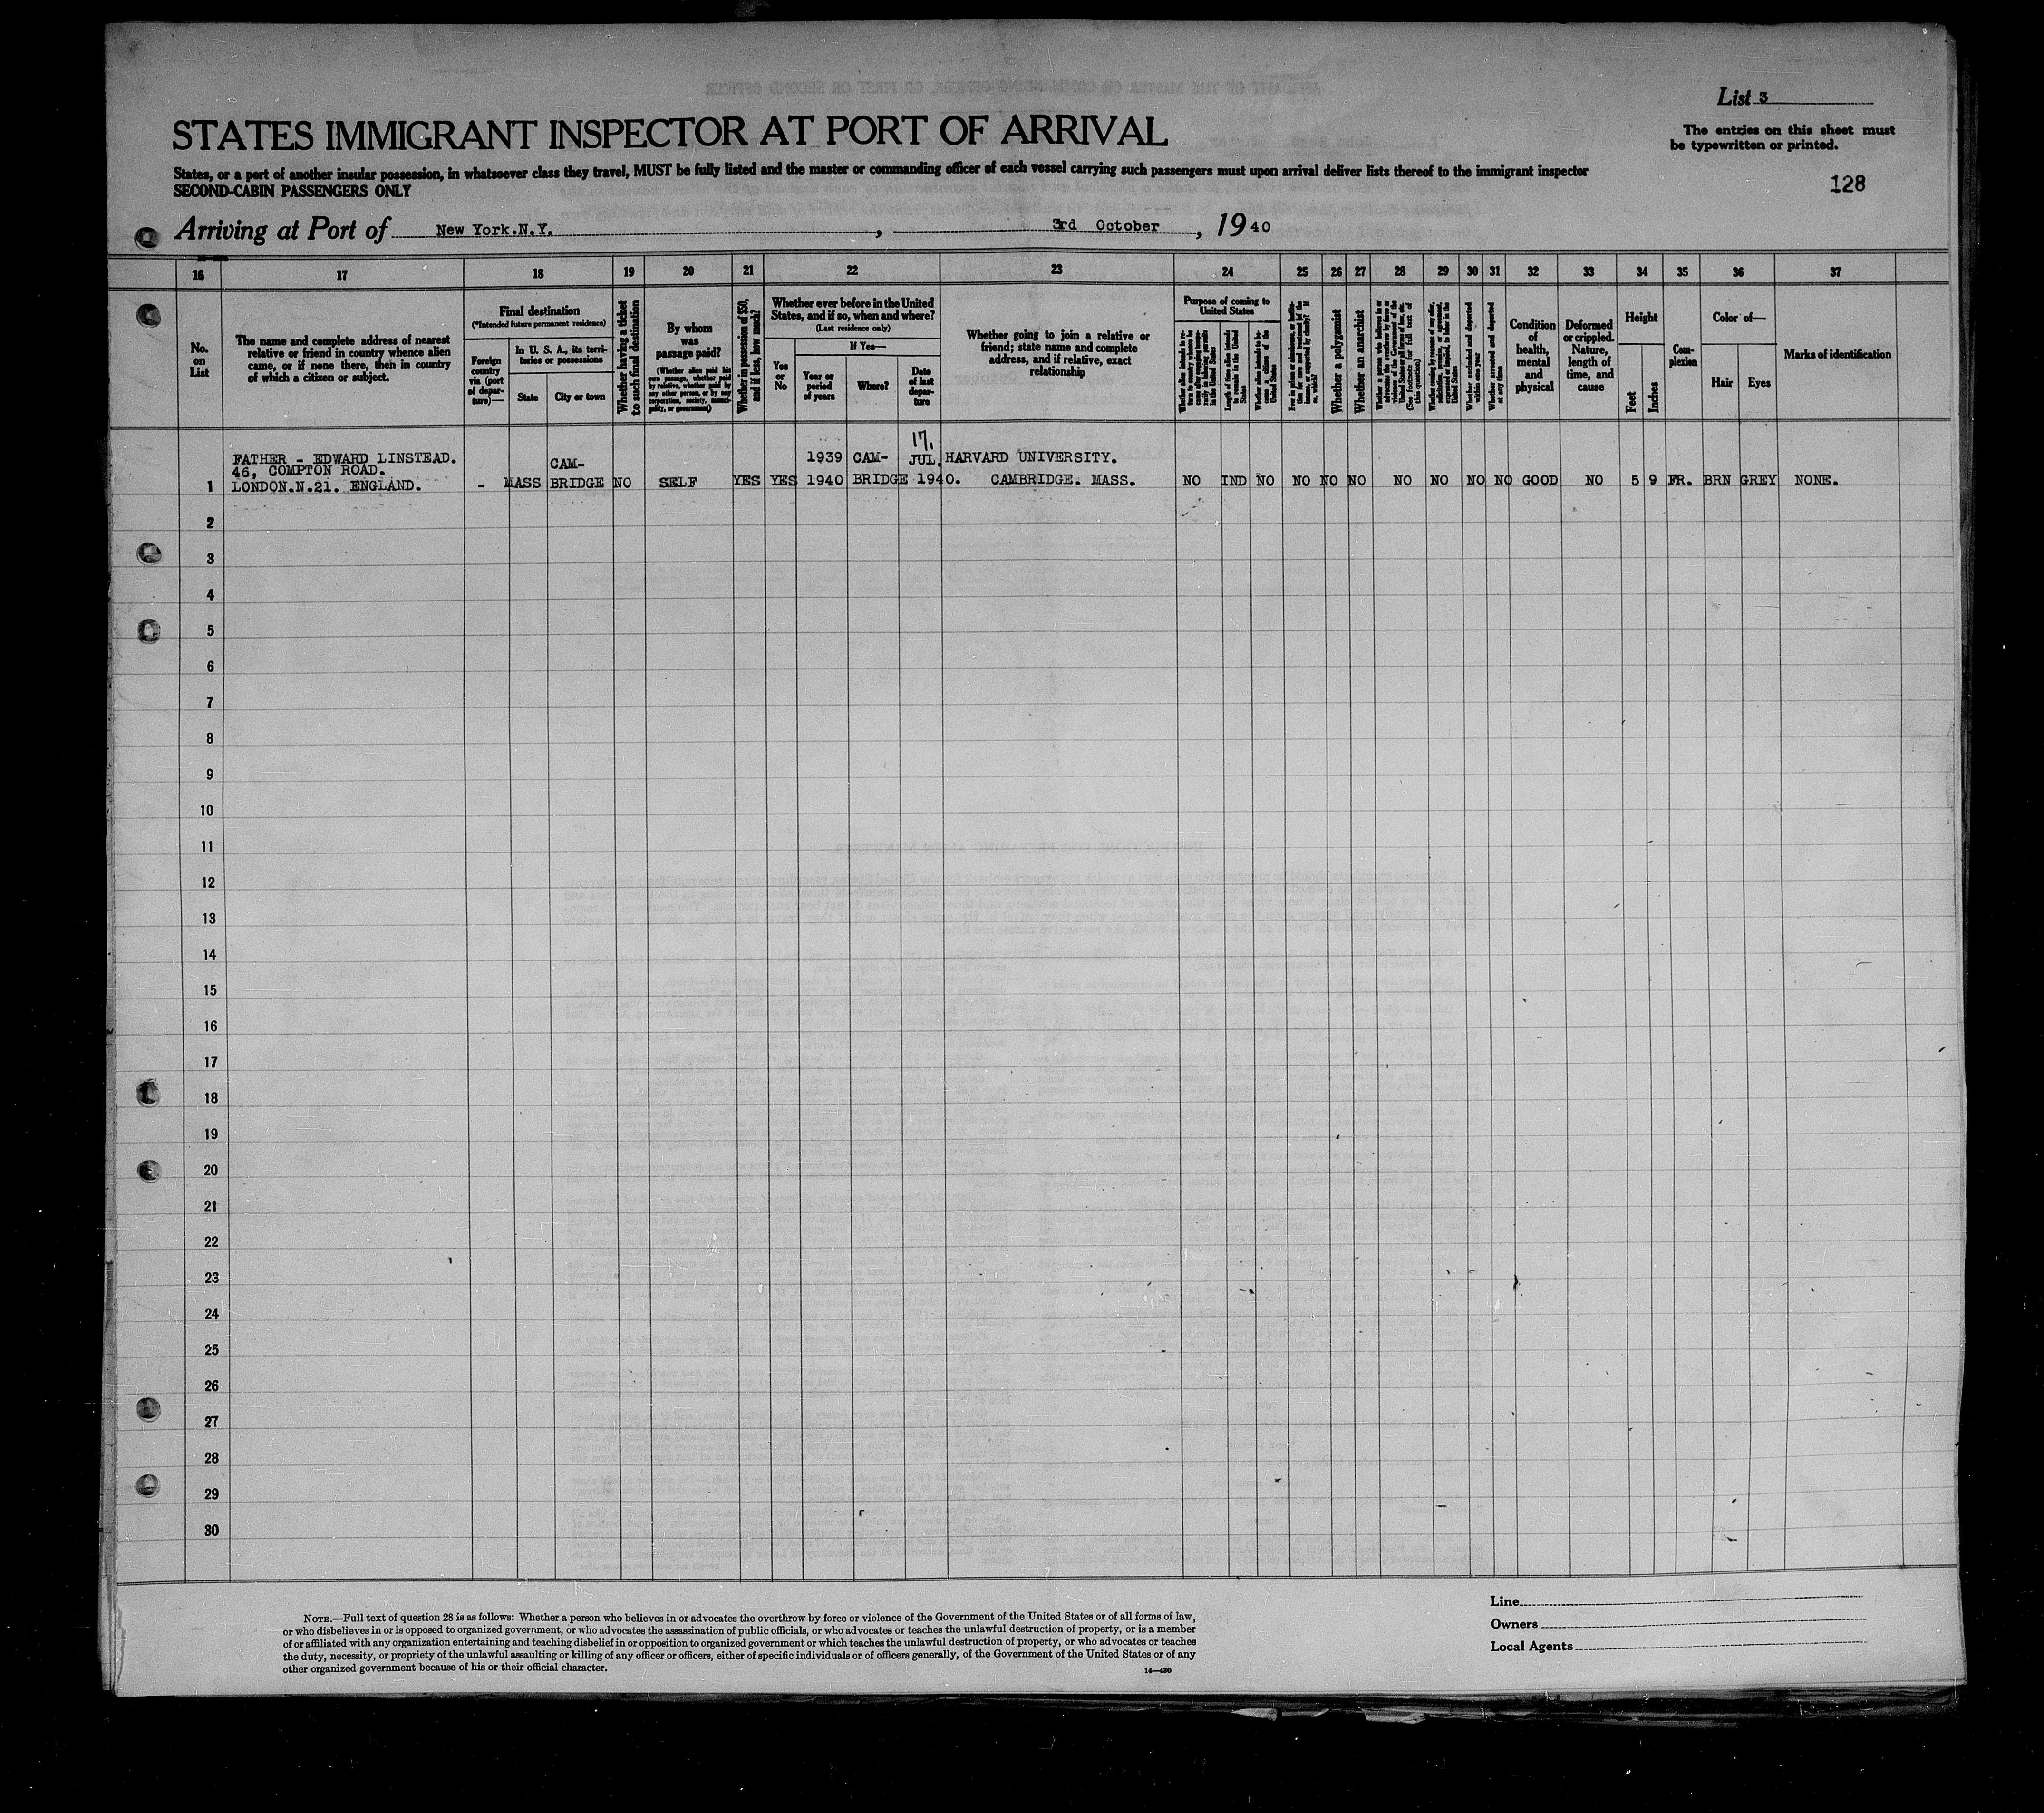 List 3
The entries on this sheet must
be typewritten or printed.
128
STATES IMMIGRANT INSPECTOR AT PORT OF ARRIVAL
States, or a port of another insular possession, in whatsoever class they travel, MUST be fully listed and the master or commanding officer of each vessel carrying such passengers must upon arrival deliver lists thereof to the immigrant inspector
SECOND-CABIN PASSENGERS ONLY
Arriving at Port of New York.N.Y. , 3rd October , 1940
16 17 18 19 20 21 22 23 24 25 26 27 28 29 30 31 32 33 34 35 36 37
No.
on
List
The name and complete address of nearest
relative or friend in country whence alien
came, or if none there, then in country
of which a citizen or subject.
Final destination
(*Intended future permanent residence)
Foreign
country
via (port
of depar-
ture)—
In U. S. A., its terri-
tories or possessions
State
City or town
Whether having a ticket
to such final destination
By whom
was
passage paid?
(Whether alien paid his
own passage, whether paid
by relative, whether paid by
any other person, or by any
corporation, society, munici-
pality, or government)
Whether in possession of $50,
and if less, how much?
Whether ever before in the United
States, and if so, when and where?
(Last residence only)
Yes
or
No
If Yes—
Year or
period
of years
Where?
Date
of last
depar-
ture
Whether going to join a relative or
friend; state name and complete
address, and if relative, exact
relationship
Purpose of coming to
United States
Length of time alien intends
to remain in the United
States
Whether alien intends to be-
come a citizen of the
United States
Whether a polygamist
Whether an anarchist
(See footnote for full text of
this question)
Whether excluded and deported
within one year
Whether arrested and deported
at any time
Condition
of
health,
mental
and
physical
Deformed
or crippled.
Nature,
length of
time, and
cause
Height
Feet
Inches
Com-
plexion
Color of—
Hair
Eyes
Marks of identification
17,
FATHER - EDWARD LINSTEAD. CAM- 1939 CAM- JUL. HARVARD UNIVERSITY.
46, COMPTON ROAD.
1 LONDON.N.21. ENGLAND. - MASS BRIDGE NO SELF YES YES 1940 BRIDGE 1940. CAMBRIDGE. MASS. NO IND NO NO NO NO NO NO NO NO GOOD NO 5 9 FR. BRN GREY NONE.
2
3
4
5
6
7
8
9
10
11
12
13
14
15
16
17
18
19
20
21
22
23
24
25
26
27
28
29
30
NOTE.—Full text of question 28 is as follows: Whether a person who believes in or advocates the overthrow by force or violence of the Government of the United States or of all forms of law,
or who disbelieves in or is opposed to organized government, or who advocates the assassination of public officials, or who advocates or teaches the unlawful destruction of property, or is a member
of or affiliated with any organization entertaining and teaching disbelief in or opposition to organized government or which teaches the unlawful destruction of property, or who advocates or teaches
the duty, necessity, or propriety of the unlawful assaulting or killing of any officer or officers, either of specific individuals or of officers generally, of the Government of the United States or of any
other organized government because of his or their official character.
14—430
Line
Owners
Local Agents